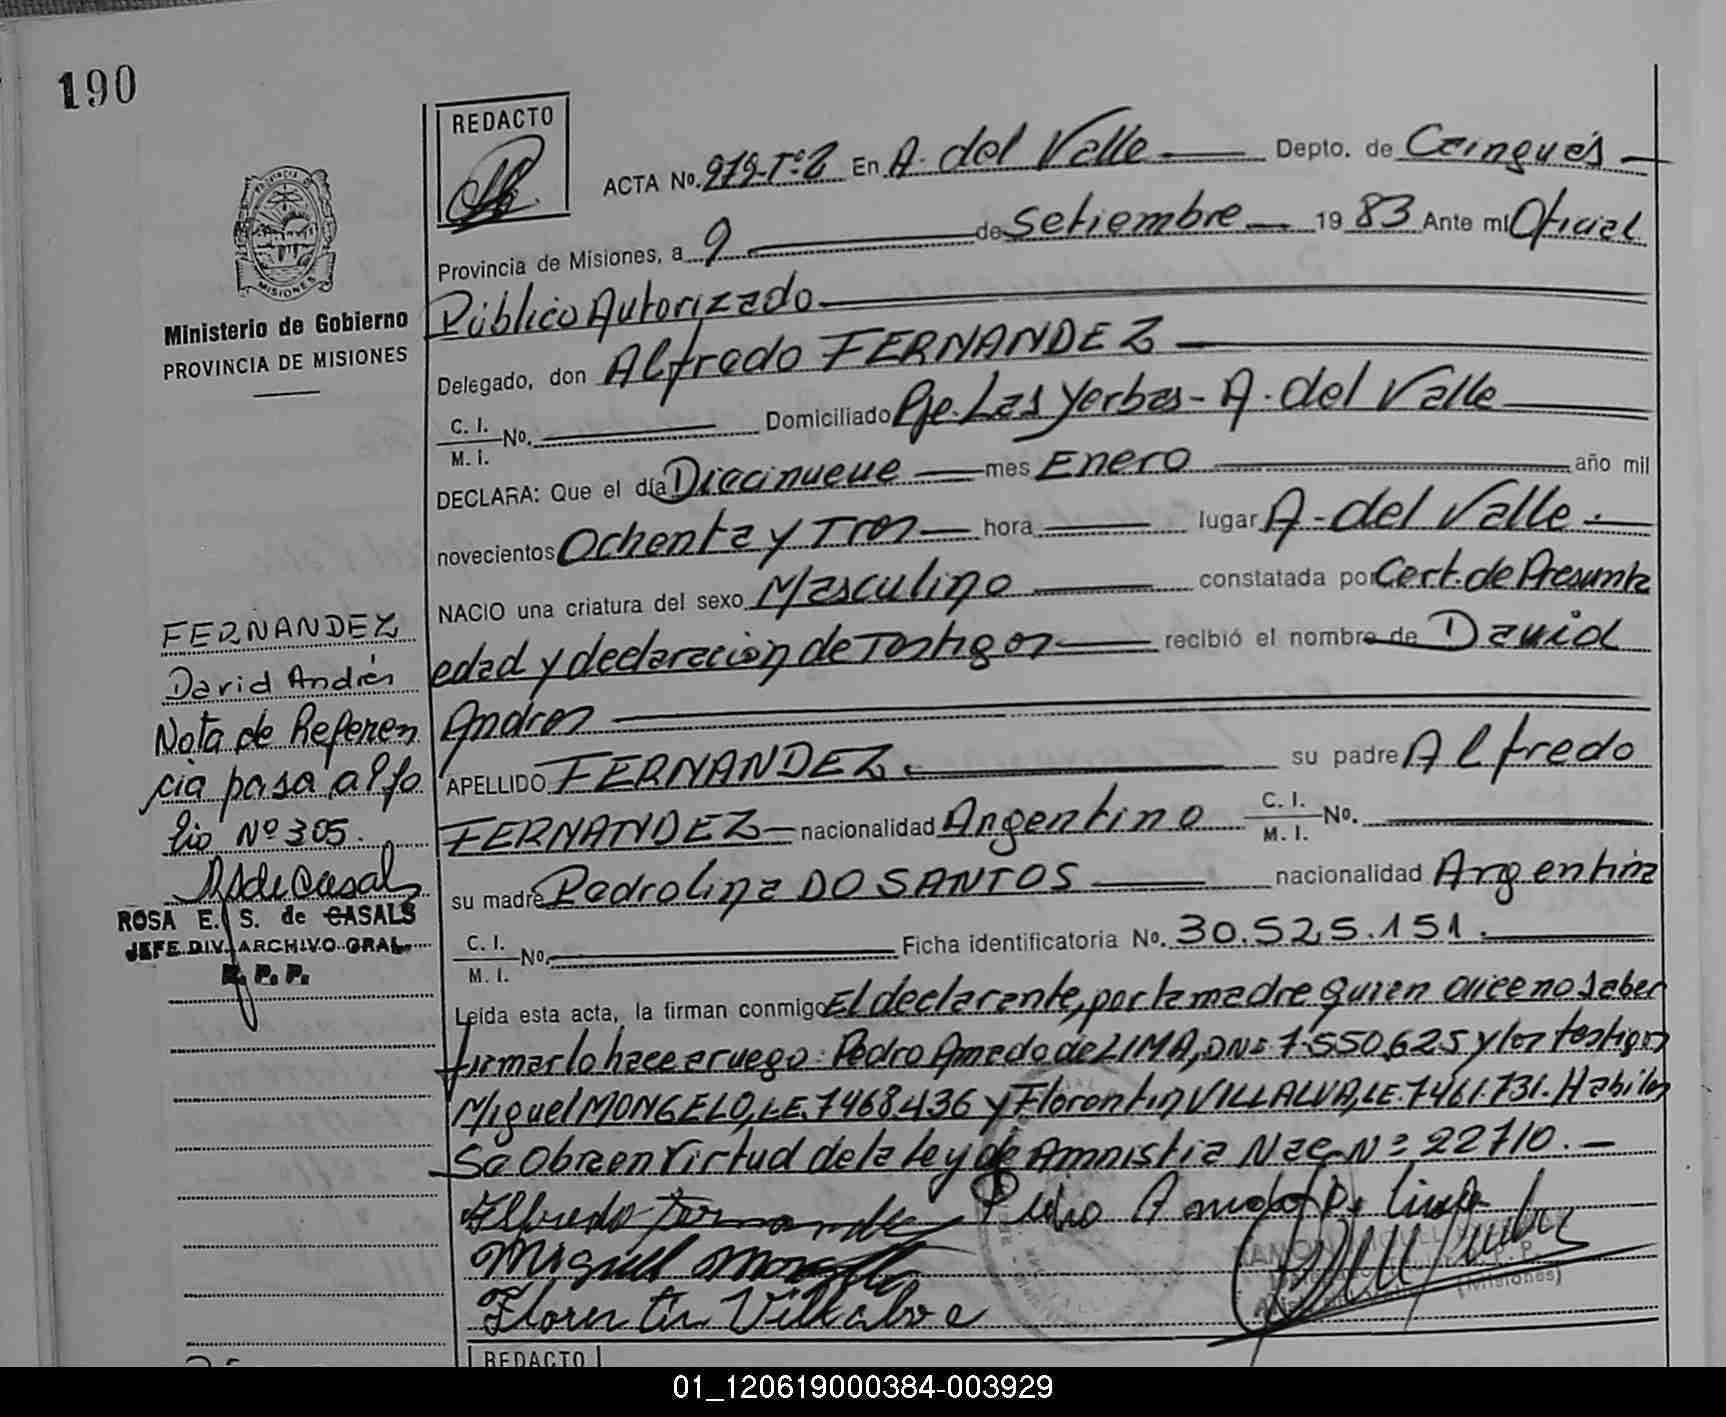 190
REDACTO
ACTA No. 979-Tº2 En A. del Valle Depto. de Cainguás
Provincia de Misiones, a 9 de Setiembre 1983 Ante mí Oficial
Público Autorizado
Delegado, don Alfredo FERNANDEZ
C. I.
M. I. No. Domiciliado Pje. Las Yerbas - A. del Valle
DECLARA: Que el día Diecinueve mes Enero año mil
novecientos Ochenta y Tres hora lugar A. del Valle.
NACIO una criatura del sexo Masculino constatada por Cert. de Presunta
edad y declaración de Testigos recibió el nombre de David
Andres
APELLIDO FERNANDEZ. su padre Alfredo
FERNANDEZ nacionalidad Argentino C. I.
M. I. No.
su madre Pedrolina DO SANTOS nacionalidad Argentina
C. I.
M. I. No. Ficha identificatoria No. 30.525.151.
Leída esta acta, la firman conmigo El declarante, por la madre quien dice no saber
firmar lo hace a ruego: Pedro Amado de LIMA, DNI 7.550.625 y los testigos
Miguel MONGELO, L.E. 7468.436 y Florentin VILLALVA, LE. 7461.731. Habiles
Se Obra en Virtud de la Ley de Amnistia Nac. Nº 22710.-
Alfredo Fernandez Pedro Amado De Lima
Miguel
Florentin Villalva
(Misiones)
REDACTO
PROVINCIA DE
MISIONES
Ministerio de Gobierno
PROVINCIA DE MISIONES
FERNANDEZ
David Andrés
Nota de Referen
cia pasa al fo
lio Nº 305.
RSdeCasals
ROSA E. S. de CASALS
JEFE DIV. ARCHIVO GRAL.
R. P. P.
01_120619000384-003929